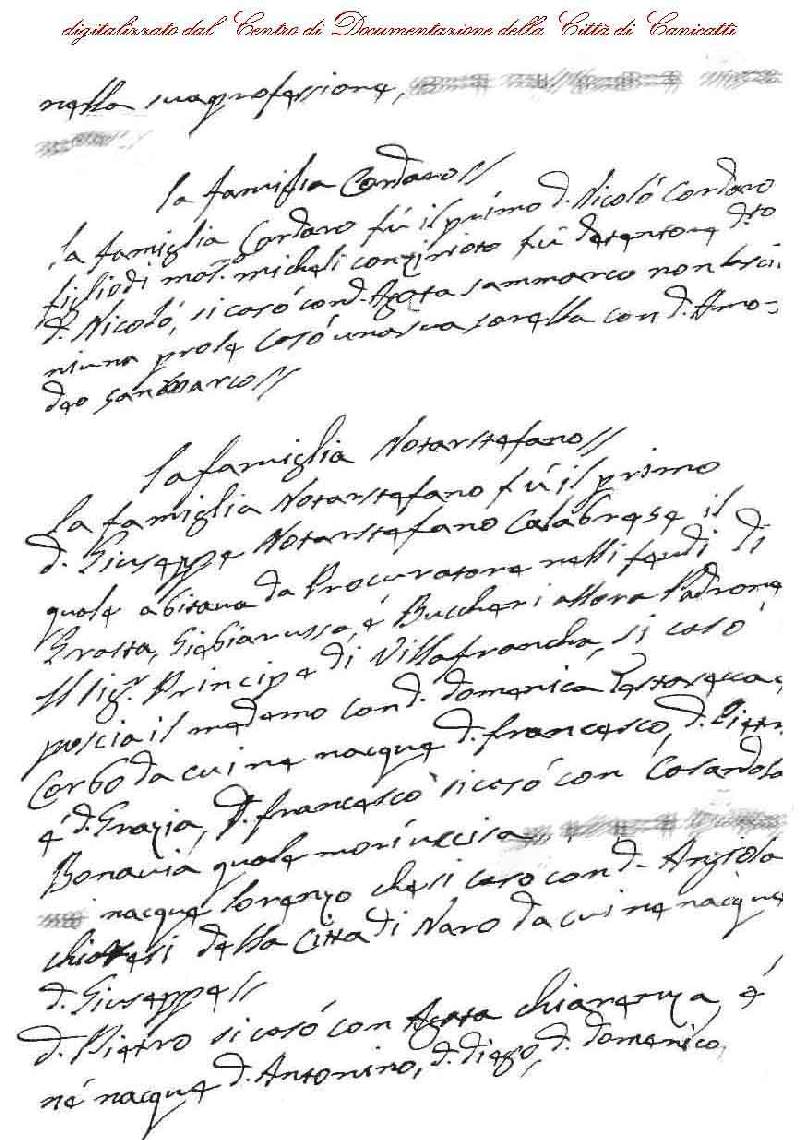 digitalizzato dal Centro di Documentazione della Città di Canicattì
nella sua professione,
la famiglia Cordaro//
la famiglia Cordaro fú il primo d. Nicoló Cordaro
figlio di mas.º micheli fú detentore dto
d. Nicoló, si casó con d. Agata sammarco non lasció
niuna prole Casó una sua sorella con d. Amo=
deo sanmarco//
la famiglia Notarstefano//
la famiglia Notarstefano fú il primo
d. Giuseppe Notarstefano Calabrese il
quale abitava da Procuratore nelli feudi di
Grotta, Giebiarussa, é Buccheri allora Padrone
Il sigr. Principe di Villafrancha, si casó
poscia il medemo con d. domenica Testasecca e
Corbo da cui ne nacque d. francesco, d. Pietro
é d. Grazia, d. francesco si casó con Casandola
Bonavia quale morí uccisa
nacque lorenzo che si caso con d. Angiola
della Citta di Naro da cui ne nacque
d. Giuseppe//
d. Pietro si casó con Agata chiarenza, é
né nacque d. Antonino, d. diego, d. domenico,